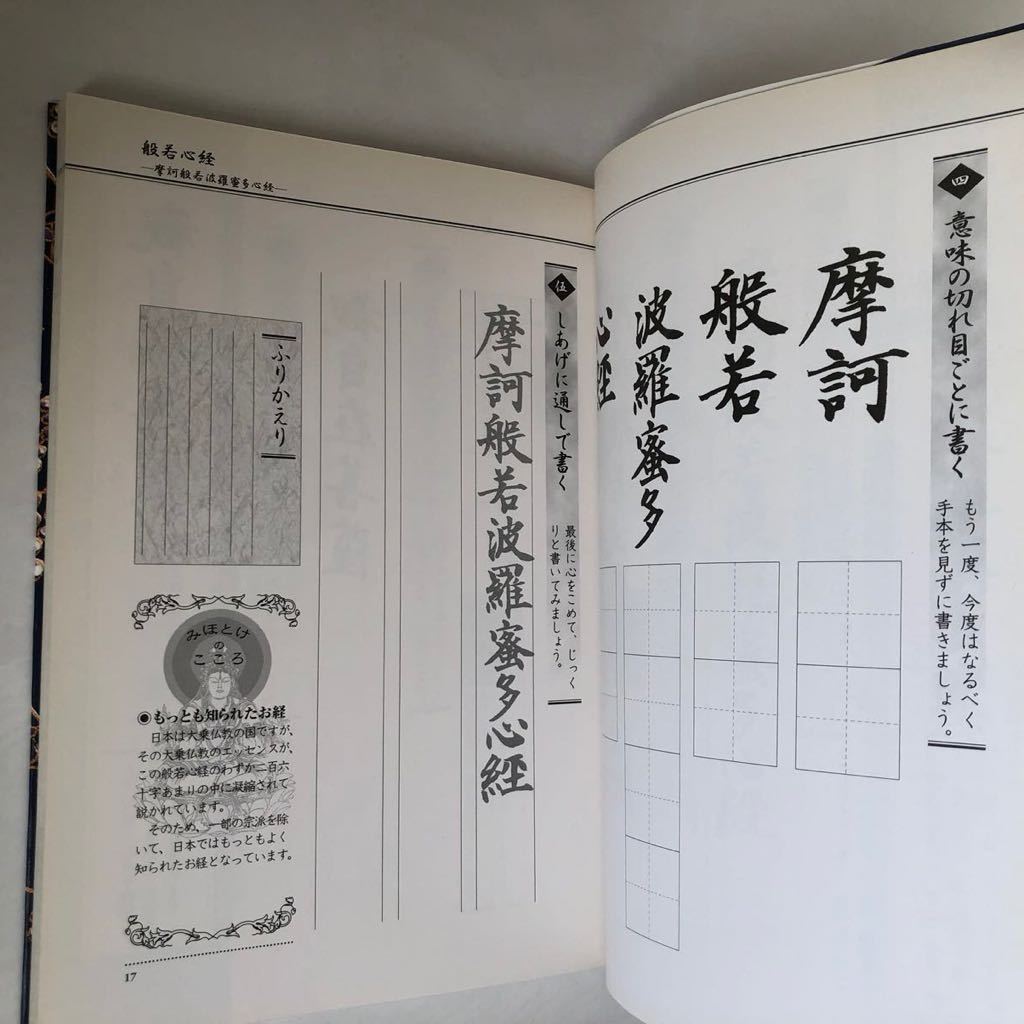 四
意味の切れ目ごとに書く
もう一度、今度はなるべく
手本を見ずに書きましょう。
摩訶
般若
波羅蜜多
心経
般若心経
—摩訶般若波羅蜜多心経—
伍
しあげに通して書く
最後に心をこめて、じっく
りと書いてみましょう。
摩訶般若波羅蜜多心経
ふりかえり
みほとけ
の
こころ
◉もっとも知られたお経
日本は大乗仏教の国ですが、
その大乗仏教のエッセンスが、
この般若心経のわずか二百六
十字あまりの中に凝縮されて
説かれています。
そのため、一部の宗派を除
いて、日本ではもっともよく
知られたお経となっています。
17